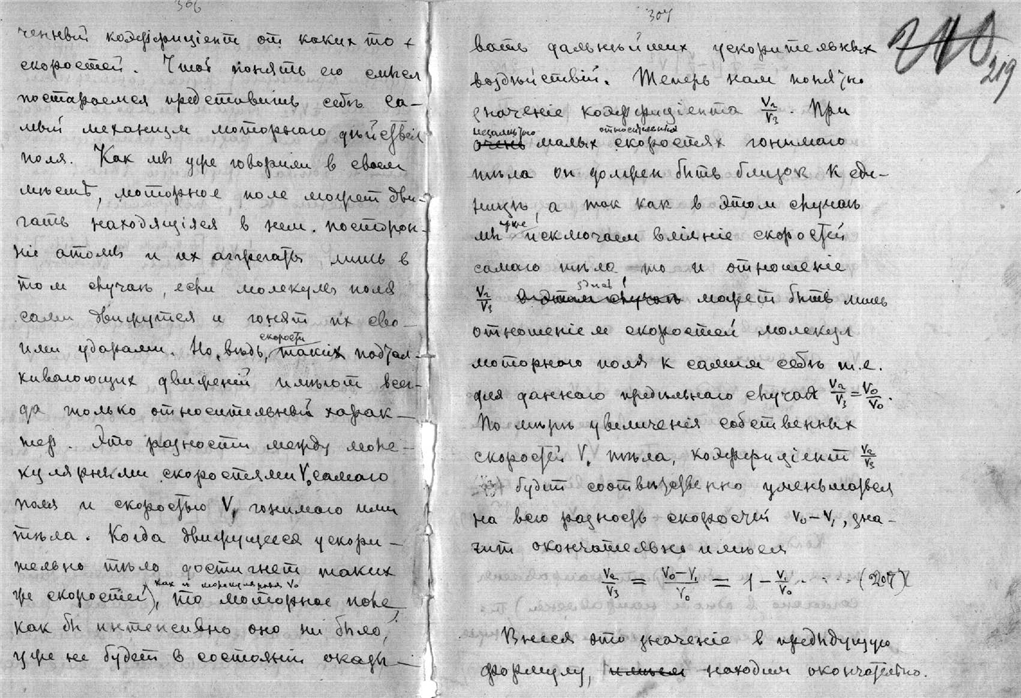 306
ченный коэффиціент от каких то
скоростей. Чтоб понять его смысл
постараемся представить себѣ са-
мый механизм моторнаго дѣйствія
поля. Как мы уже говорили в своем
мѣстѣ, моторное поле может дви-
гать находящіяся в нем посторон-
ніе атомы и их аггрегаты лишь в
том случаѣ, если молекулы поля
сами движутся и гонят их сво-
ими ударами. Но, вѣдь, скорости таких подтал-
кивающих движеній имѣют всег-
да только относительный харак-
тер. Это разности между моле-
кулярными скоростями V₀ самаго
поля и скоростью V₁ гонимаго ими
тѣла. Когда движущееся ускори-
тельно тѣло достигнет таких
же скоростей, как и молекулы поля V₀, то моторное поле,
как бы интенсивно оно ни было,
уже не будет в состояніи оказы-
307
219
вать дальнѣйших ускорительных
воздѣйствій. Теперь нам понятно
значеніе коэффиціента V₂/V₃. При
незамѣтно очень малых относительно скоростях гонимаго
тѣла он должен быть близок к еди-
ницѣ, а так как в этом случаѣ
мы уже исключаем вліяніе скоростей
самаго тѣла то и отношеніе
V₂/V₃ в этом случаѣ может быть лишь
отношеніем скоростей молекул
моторнаго поля к самим себѣ т.е.
для даннаго предѣльнаго случая V₂/V₃ = V₀/V₀.
По мѣрѣ увеличенія собственных
скоростей V₁ тѣла, коэффиціент V₂/V₃
будет соотвѣтственно уменьшаться
на всю разность скоростей V₀ – V₁, зна-
чит окончательно имѣем
V₂/V₃ = (V₀ – V₁)/V₀ = 1 – V₁/V₀ ..... (207)
Внеся это значеніе в предыдущую
формулу, имѣем находим окончательно.